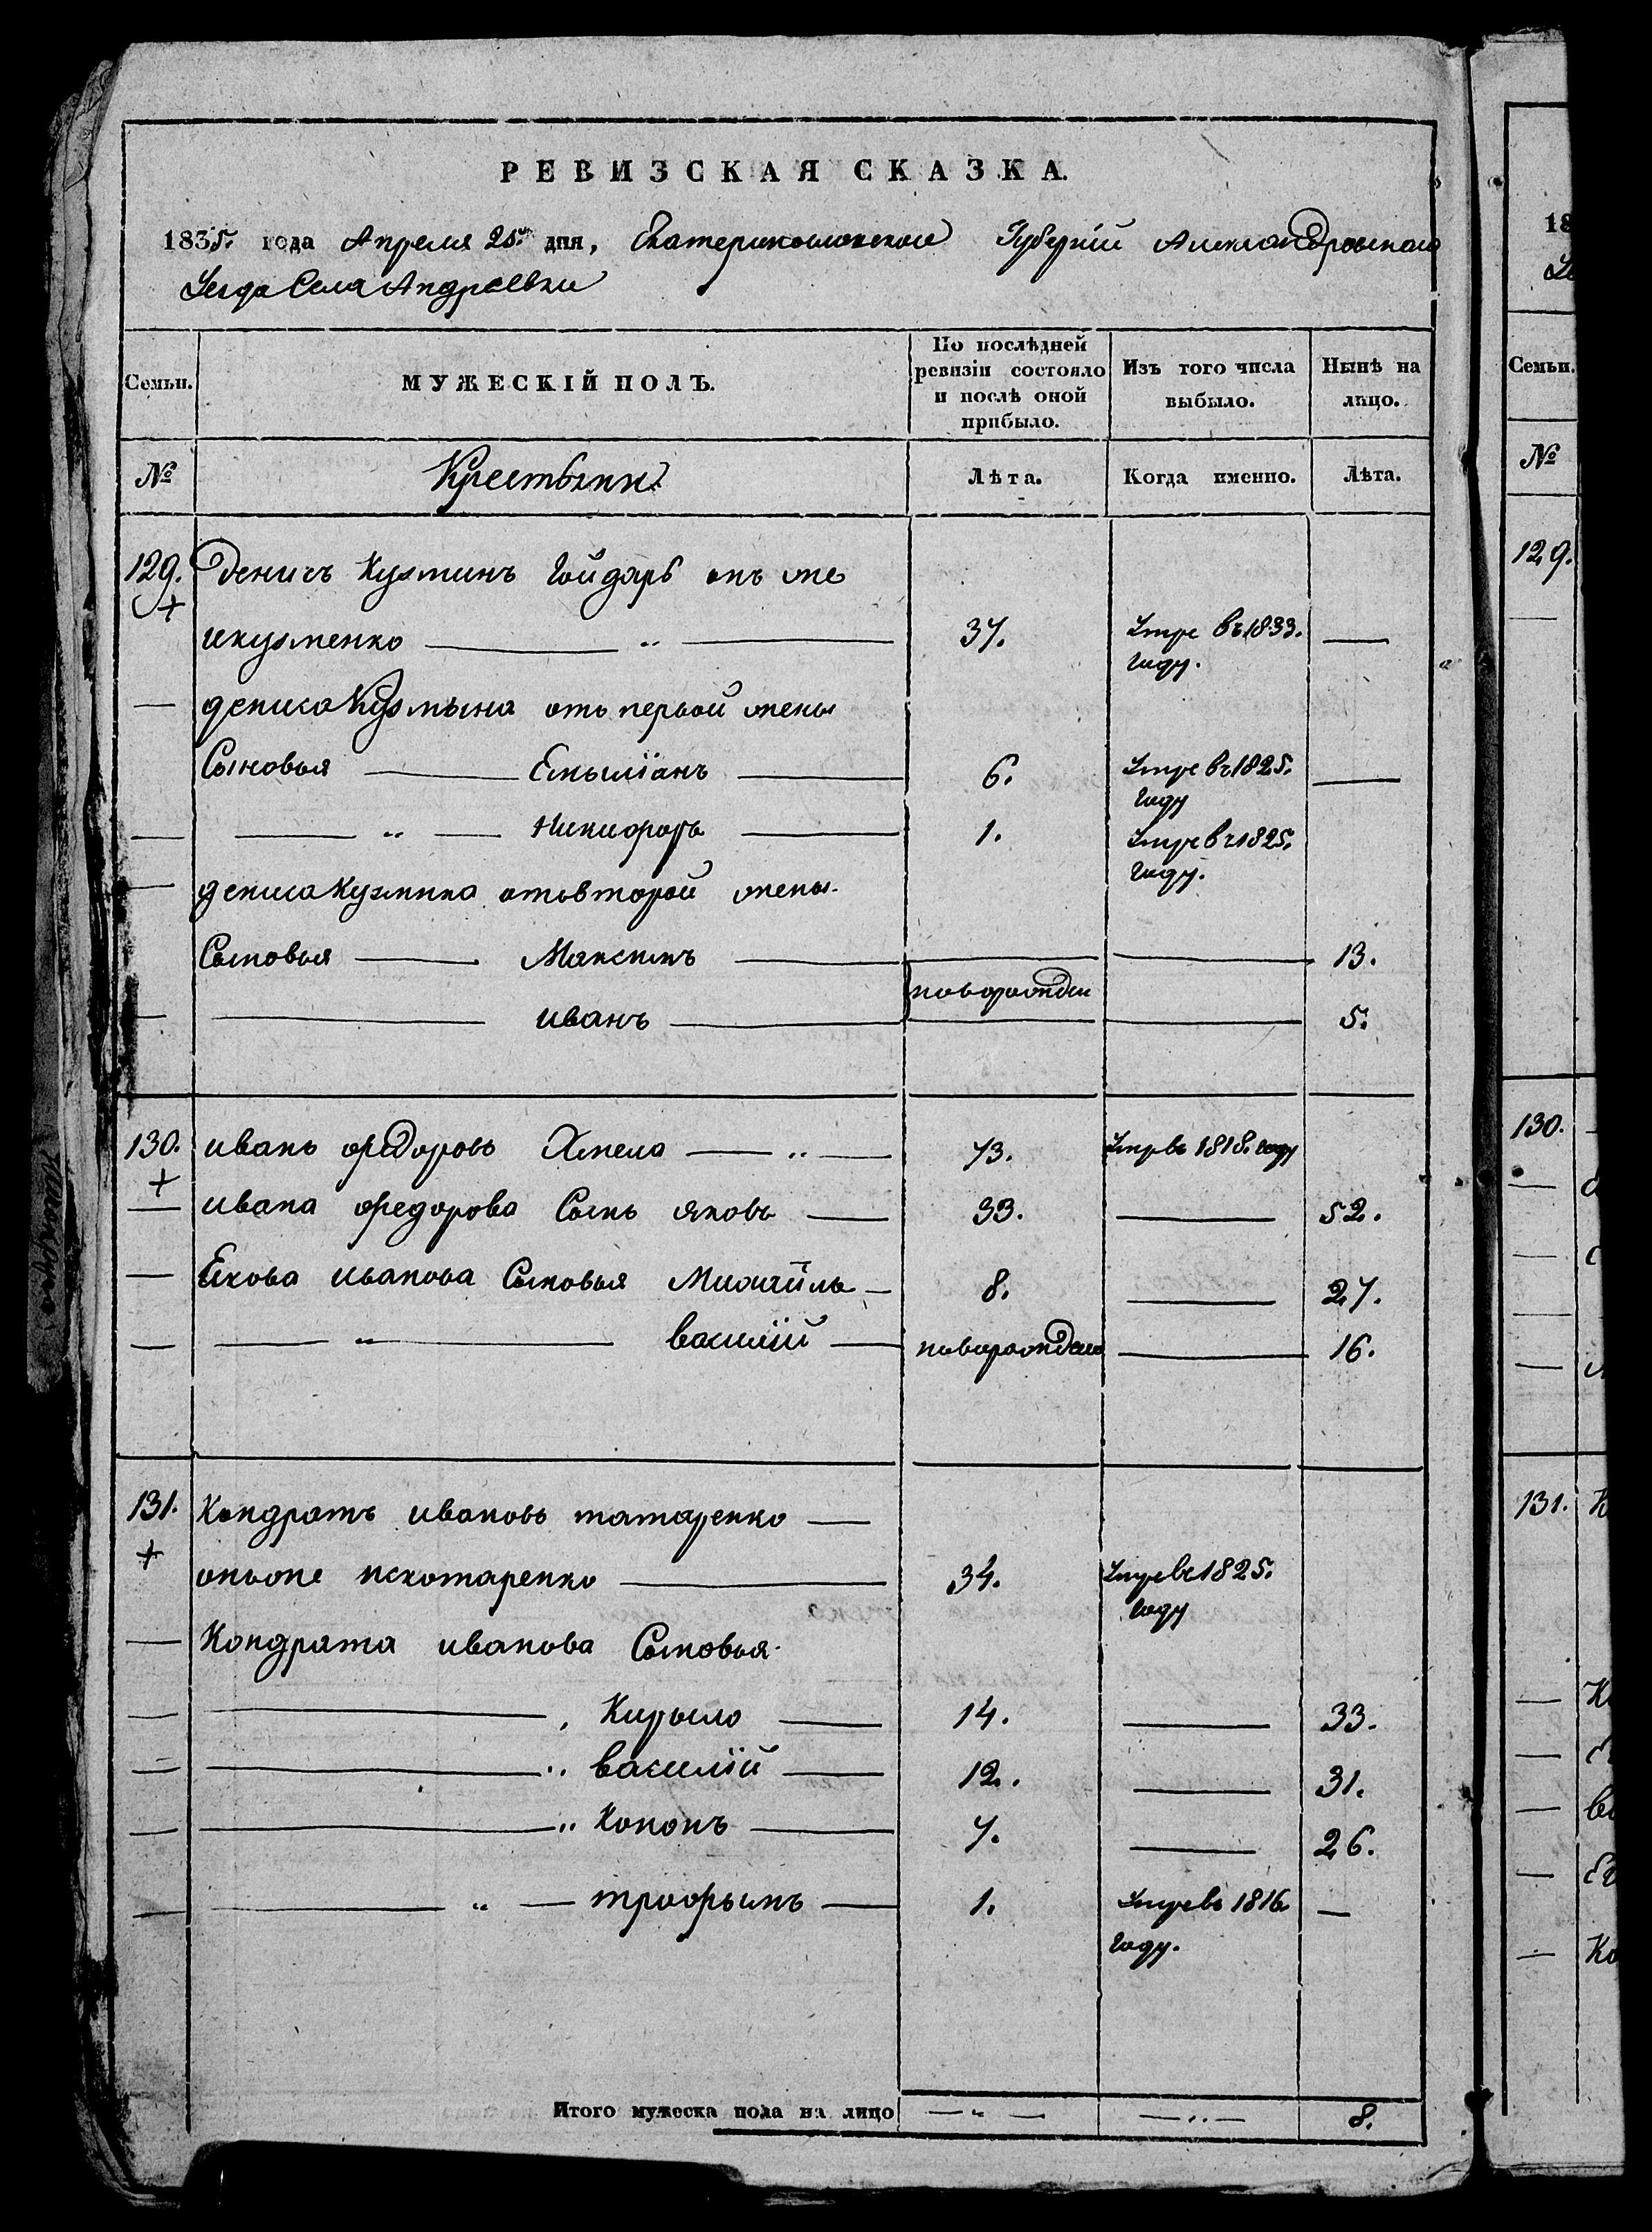 РЕВИЗСКАЯ СКАЗКА.
1835. года Апреля 25. дня, Екатеринославской Губернїи Александровскаго
Уезда Села Андреевки
Семьи. МУЖЕСКІЙ ПОЛЪ. По послѣдней ревизіи состояло и послѣ оной прибыло. Изъ того числа выбыло. Нынѣ на лицо.
№ Крестьяни Лѣта. Когда именно. Лѣта.
129. Денисъ Кузминъ Гойдарь онъ же
икузменко — „ — 37. Умре въ 1833. году. —
— дениса Кузмына отъ первой жены
Сыновья — Емылїанъ — 6. Умре въ 1825. году —
— „ — Никифоръ — 1. Умре въ 1825. году.
— дениса Кузмина отъ второй жены
Сыновья — Максимъ — новорожден — 13.
— иванъ — — 5.
130. иванъ федоровъ Хмела — „ — 73. Умре въ 1818. году
— ивана федорова Сынъ яковъ — 33. — 52.
— Екова иванова Сыновья Михайлъ — 8. — 27.
— „ — василїй — новорожден — 16.
131. Кондратъ ивановъ татаренко —
онъже — 34. Умре въ 1825. году
— Кондрата иванова Сыновья
— Кирыло — 14. — 33.
— „ василїй — 12. — 31.
— „ Кононъ — 7. — 26.
— „ — трофымъ — 1. Умре въ 1816 году. —
Итого мужеска пола на лицо — „ — — „ — 8.
18
Семьи.
№
129.
130.
131.